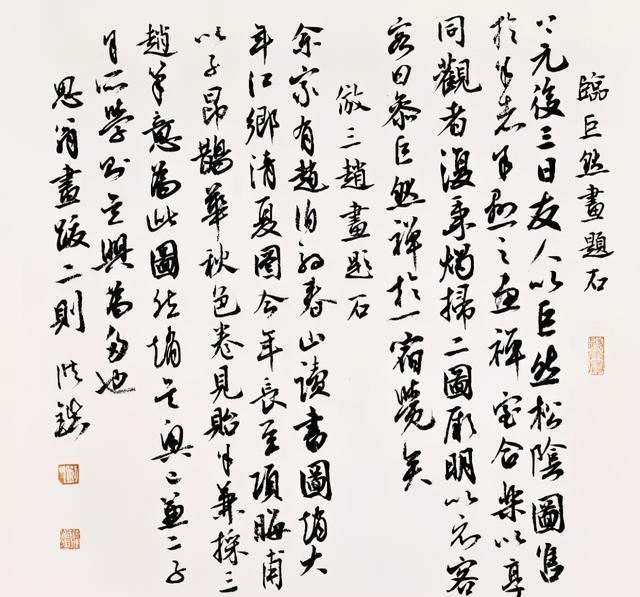 臨巨然畫題石
上元後三日友人以巨然松陰圖售
於余者余懸之畫禪室合樂以享
同觀者復秉燭掃二圖厥明以示客
客曰參巨然禪於一宿覺矣
倣三趙畫題石
余家有趙伯駒春山讀書圖趙大
年江鄉清夏圖今年長至項晦甫
以子昂鵲華秋色卷見貽余兼採三
趙筆意為此圖然趙吳興已兼二子
余所學則吳興為多也
思翁畫跋二則